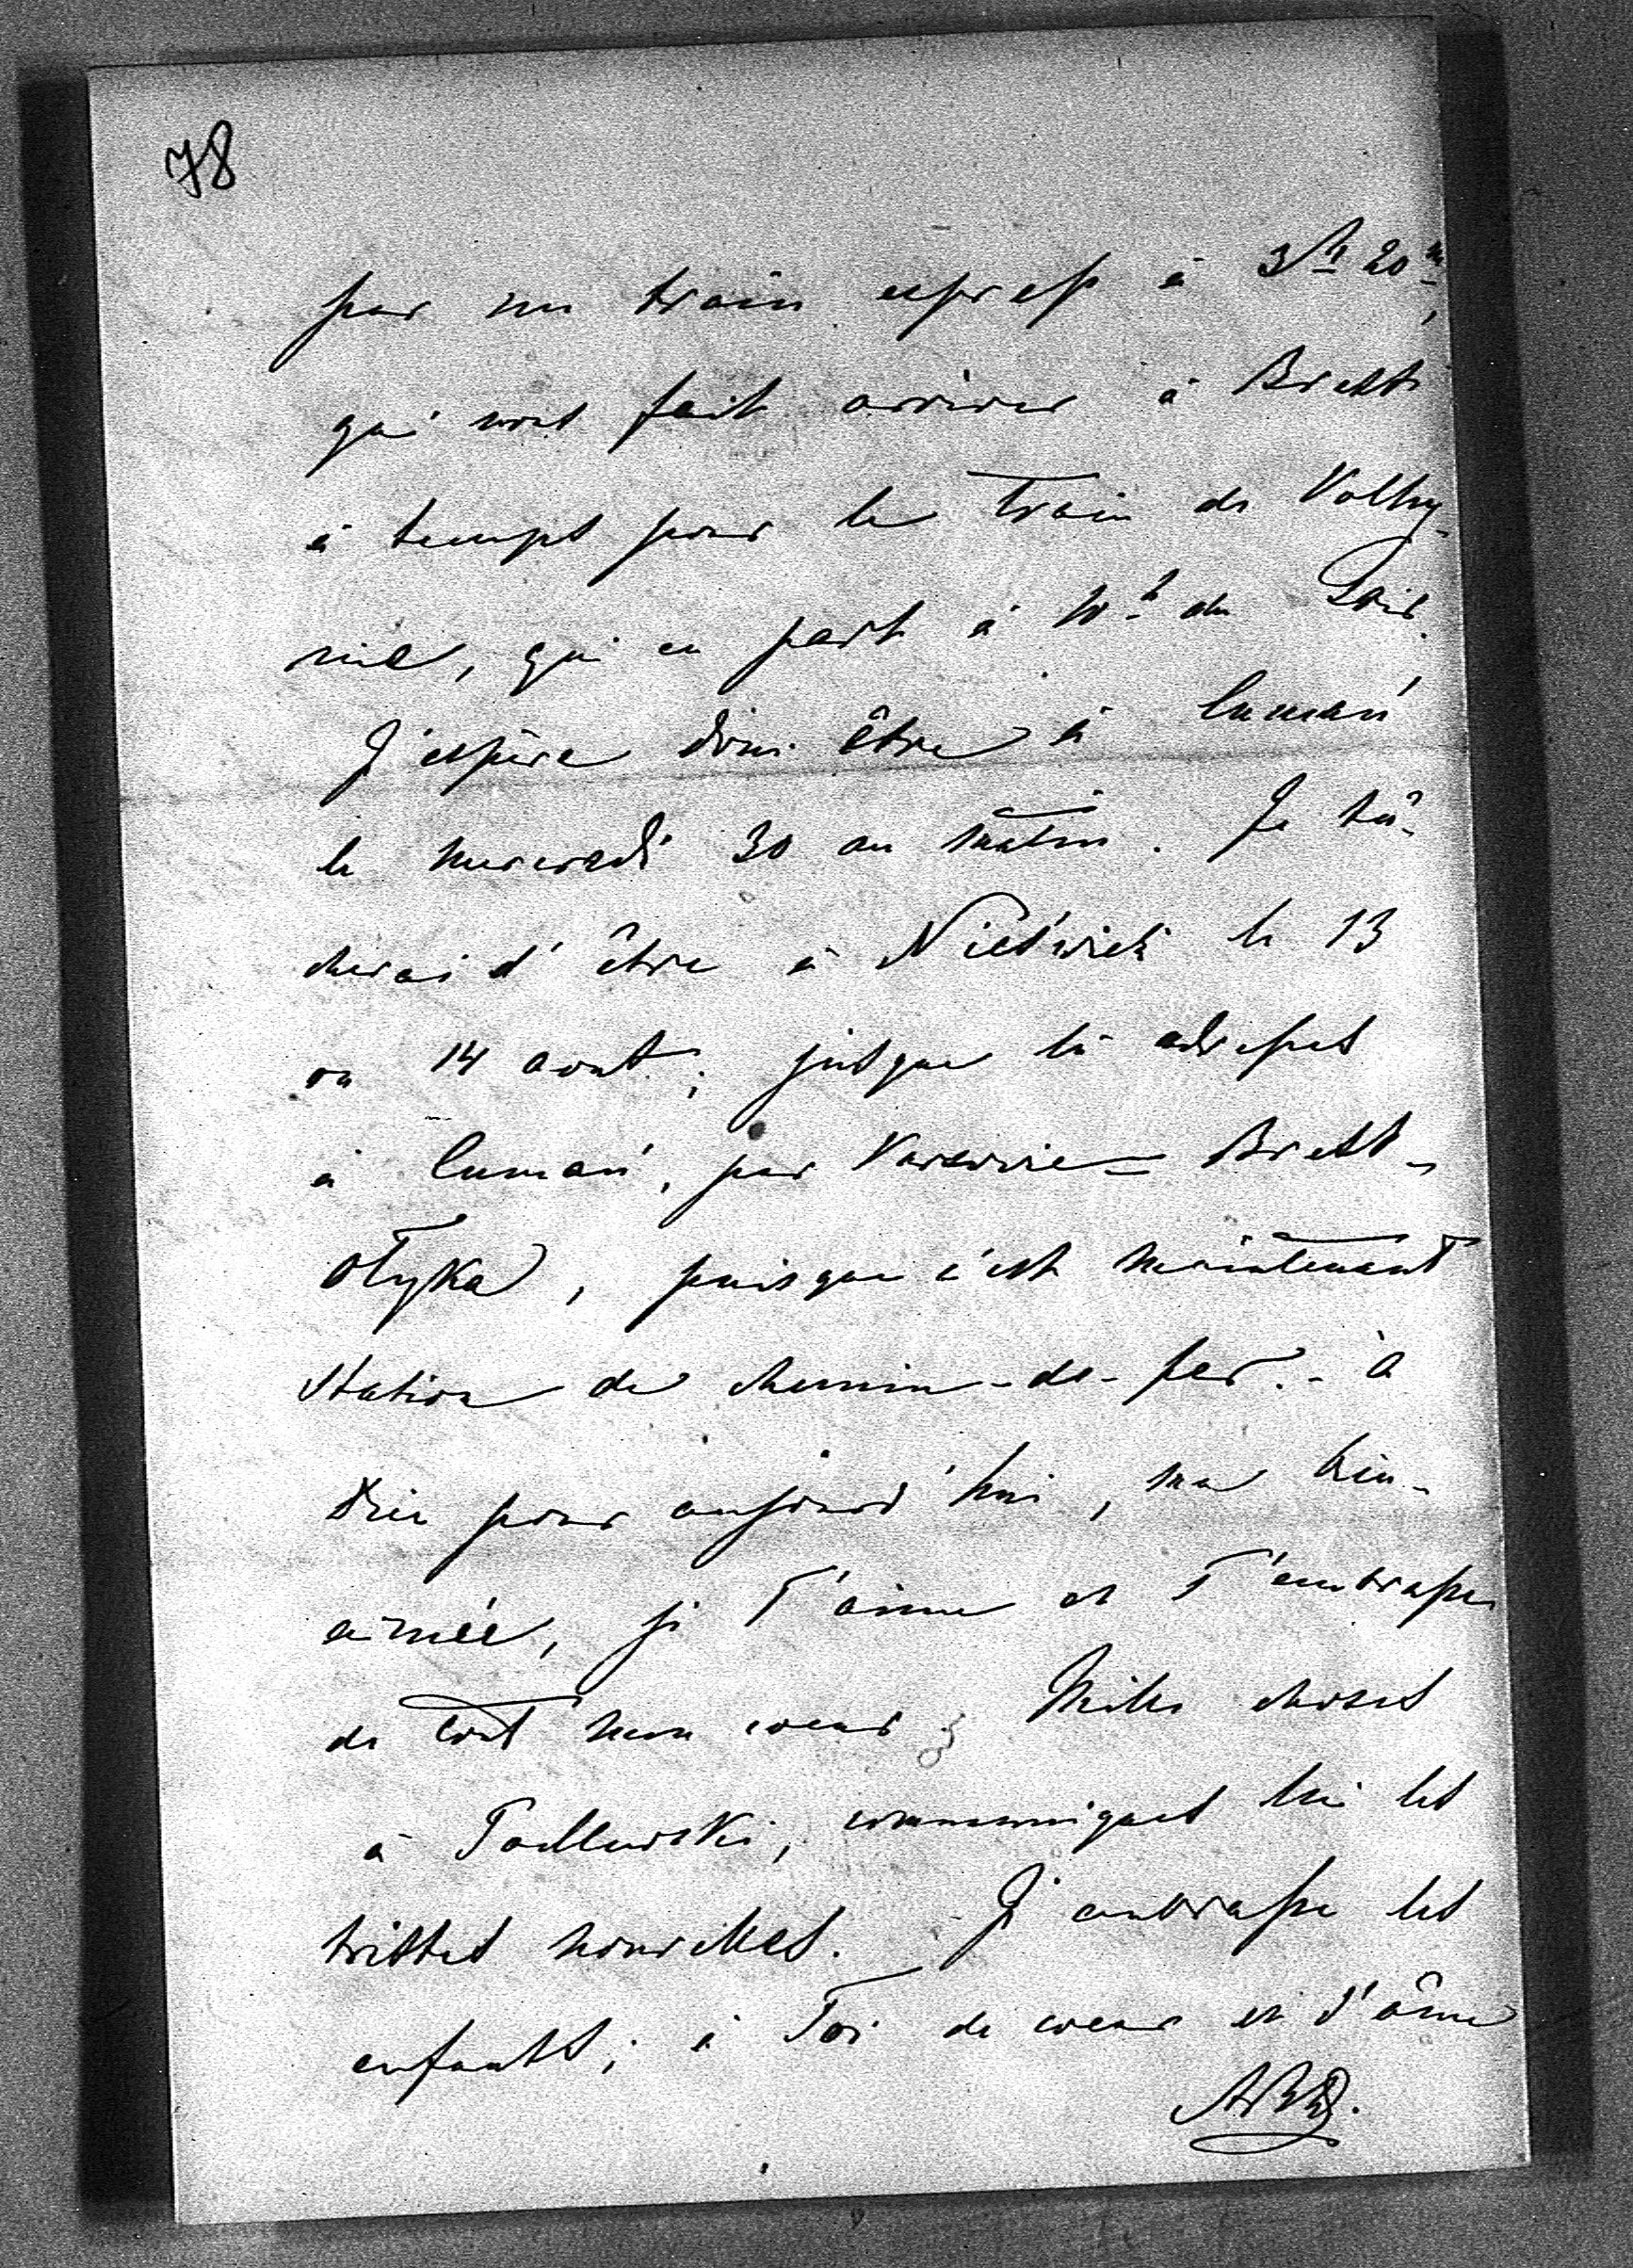 78
par un train express à 3 h 20 m,
qui vous fait arriver à Brest
à temps pour le train de Volhy-
nie, qui en part à 10 h du soir.
J'espère donc être à Cumań
le mercredi 30 au matin. Je tâ-
cherai d'être à Nieśwież le 13
ou 14 aout; jusque là adresses
à Cumań, par Varsovie = Brest -
Olyka, puisque c'est maintenant
station de chemin-de-fer. - A
dieu pour aujourd'hui, ma bien-
aimée, je T'aime et T'embrasse
de tout mon coeur; Mille choses
à Podlewski, communiques lui les
tristes nouvelles. J'embrasse les
enfants; à Toi de coeur et d'âme